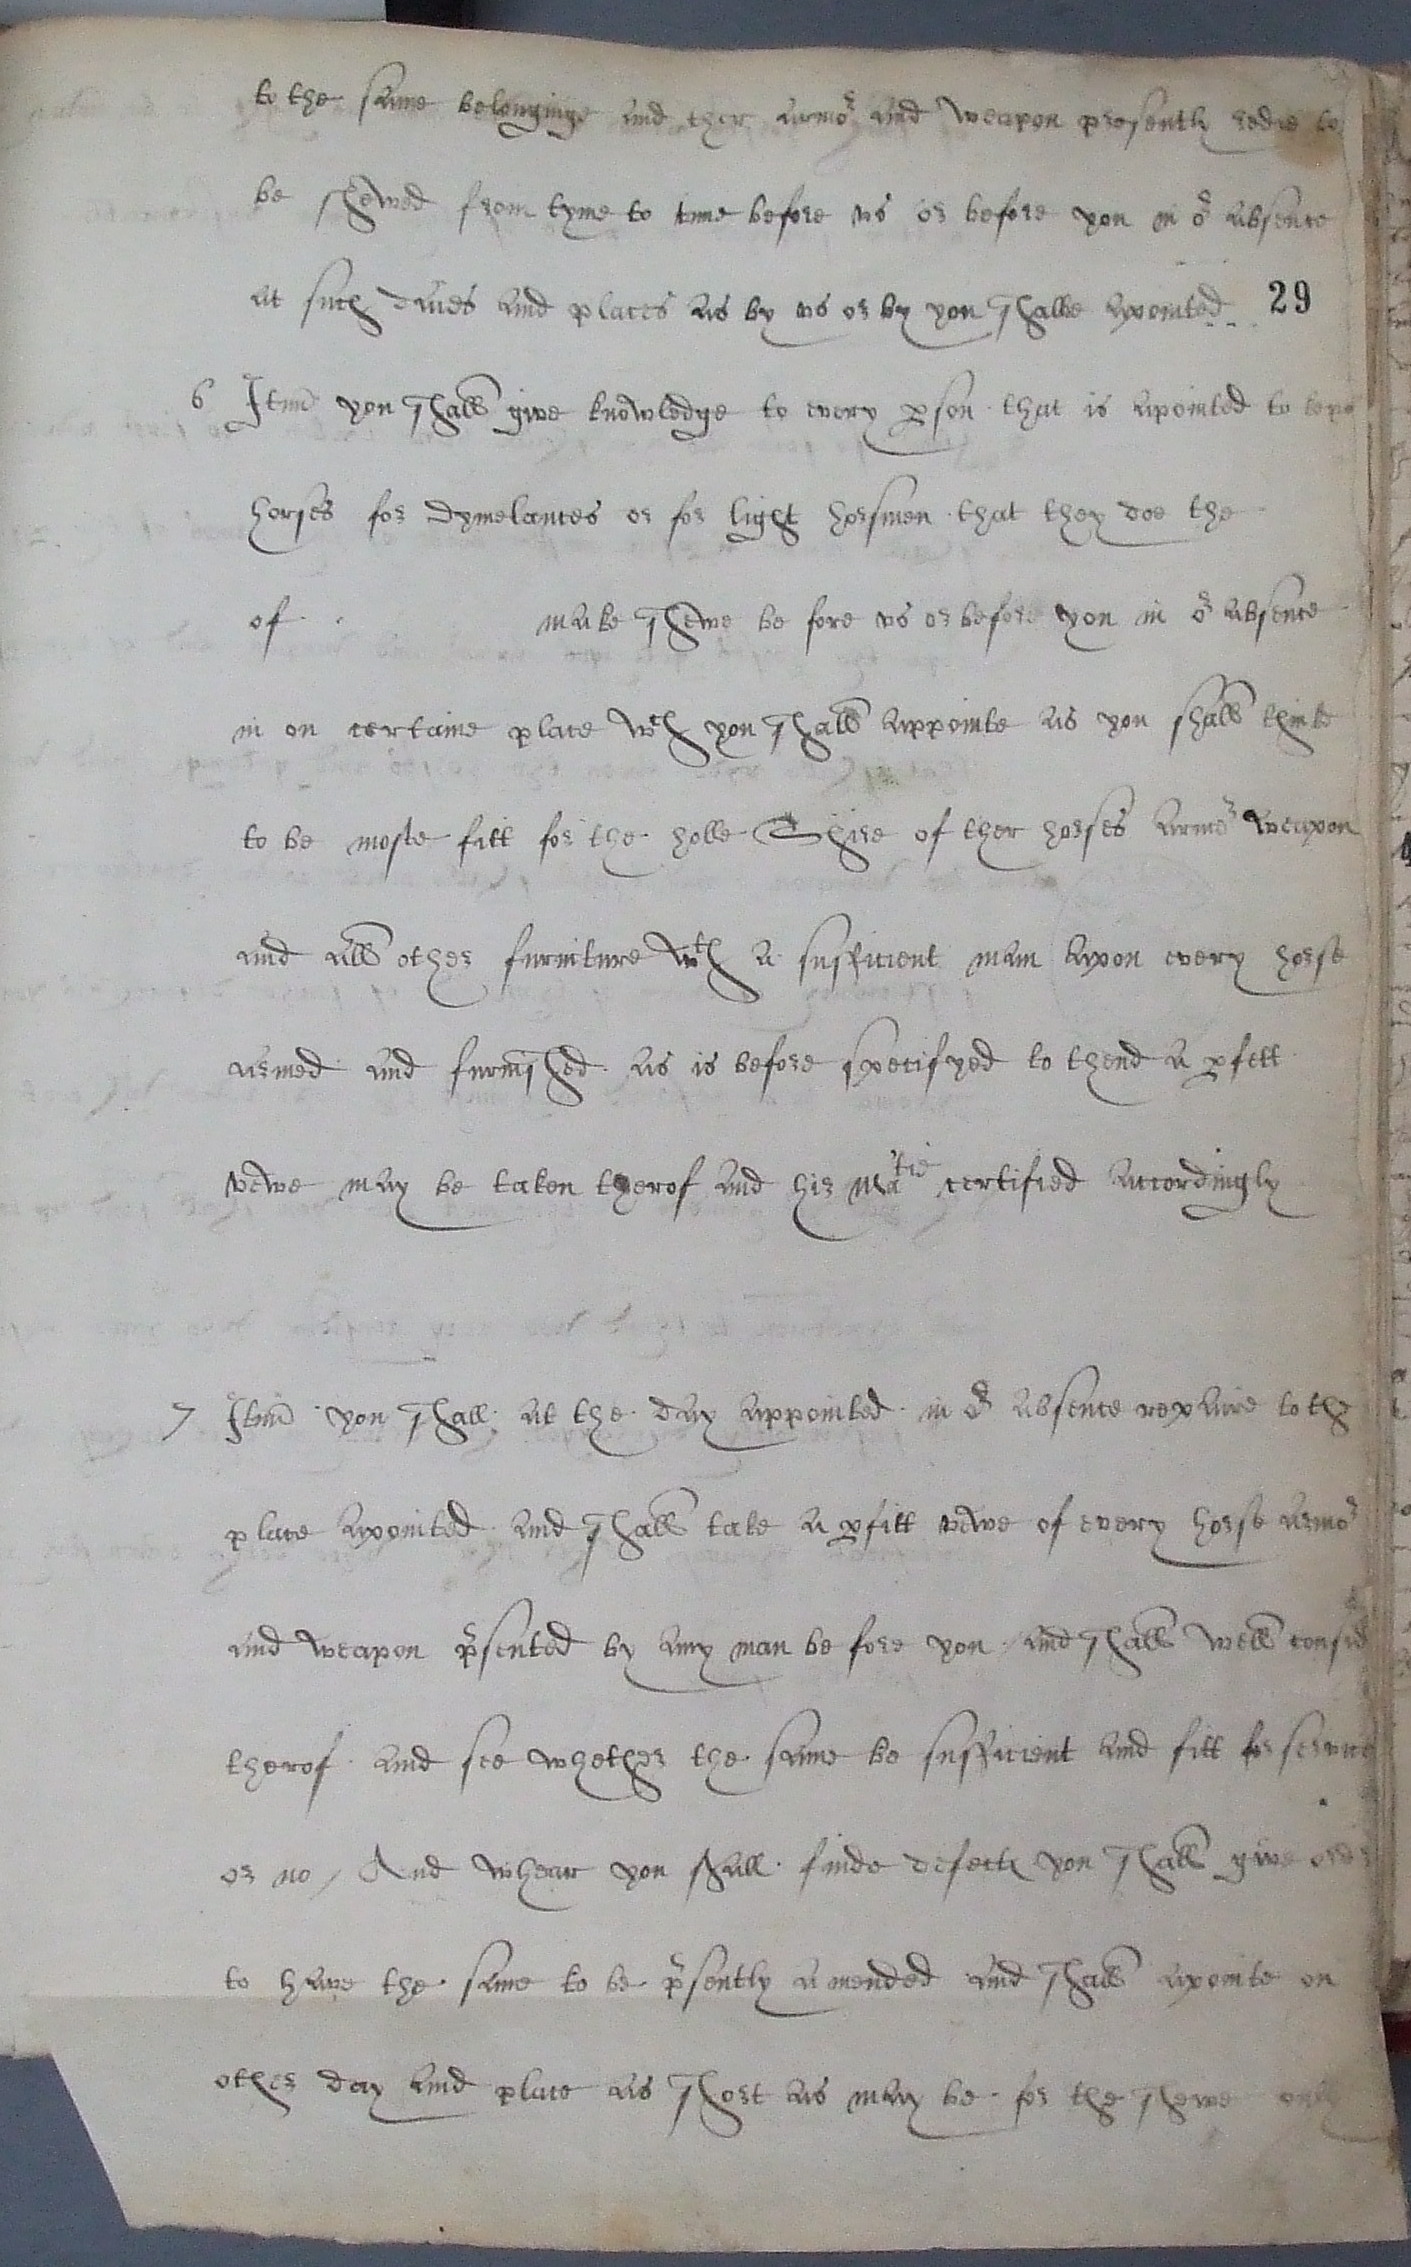 to the same belonginge and ther armor and weapon presently redie to
be shewed from tyme to time before us or before you in or absence
at such daies and places as by us or by you shalbe apointed
29
6 Itm you shall give knowledge to every pson that is apointed to kepe
horses for dymelances or for light horsmen that they doe the
of make shewe be fore us or before you in or absence
in on certaine place wch you shall appointe as you shall thinke
to be moste fitt for the holle Shire of ther horses armor weapon
and all other furniture wth a sufficient man apon every horse
armed and furnished as is before specifyed to thend a pfett
vewe may be taken therof and his Matie certified accordingly
7 Itm you shall at the day appointed in or absence repaire to the
place apointed and shall take a pfitt vewe of every horse armor
and weapon psented by any man be fore you and shall well consider
therof and see whether the same be sufficient and fitt for service
or no / And whear you shall finde defectes you shall give order
to have the same to be psently amended and shall apointe on
other day and place as short as may be for the shewe only